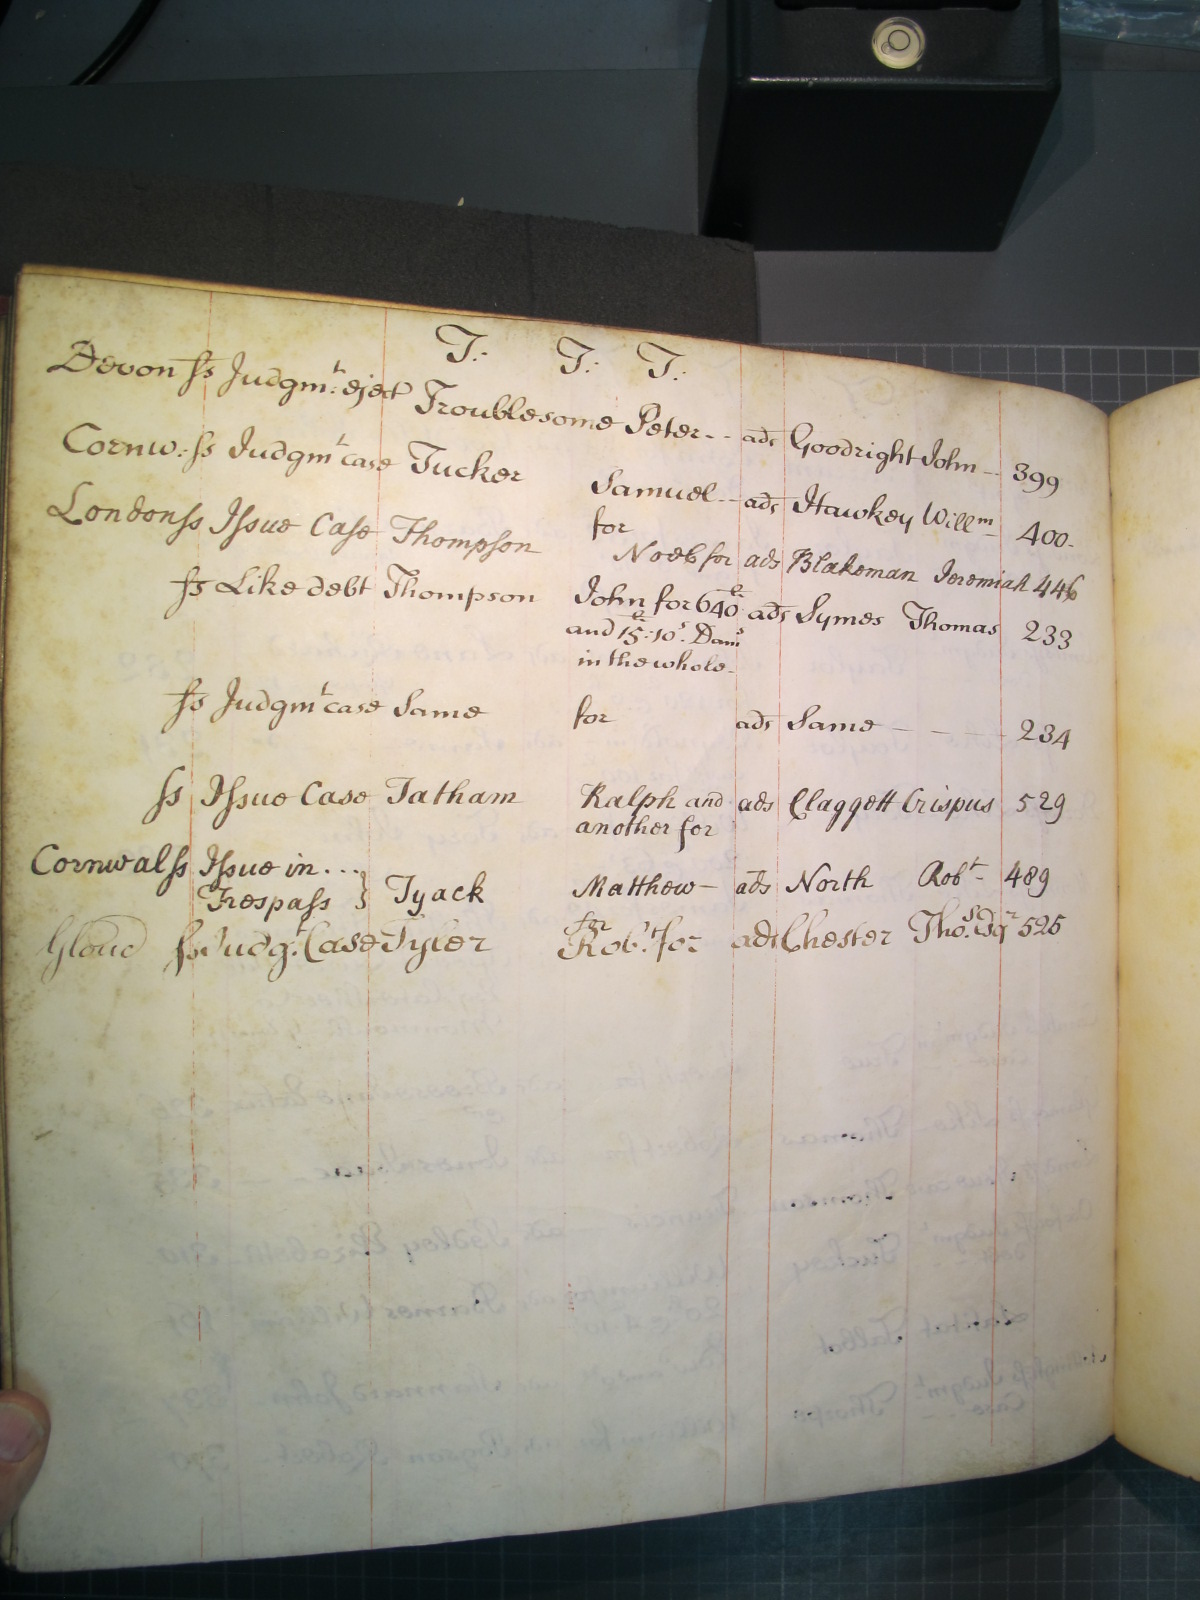 T: T: T:
Devon ss Judgmt: eject Troublesome Peter -- ads Goodright John - 399
Cornw: ss Judgmt case Tucker Samuel -- ads Hawkey Willm - 400.
for
London ss Issue Case Thompson Noeb for ads Blakeman Jeremiah 446
ss Like debt Thompson John for 640£ ads Symes Thomas 233
and 15£: 10s. Dams
in the whole -
ss Judgmt case Same for ads Same - - - - 234
ss Issue Case Tatham Ralph and ads Claggett Crispus 529
another for
Cornwal ss Issue in ...
Trespass } Tyack Matthew - ads North Robt - 489
for
Glouc ss Judgt. Case Tyler Robt. for ads Chester Thos. Esqr 525